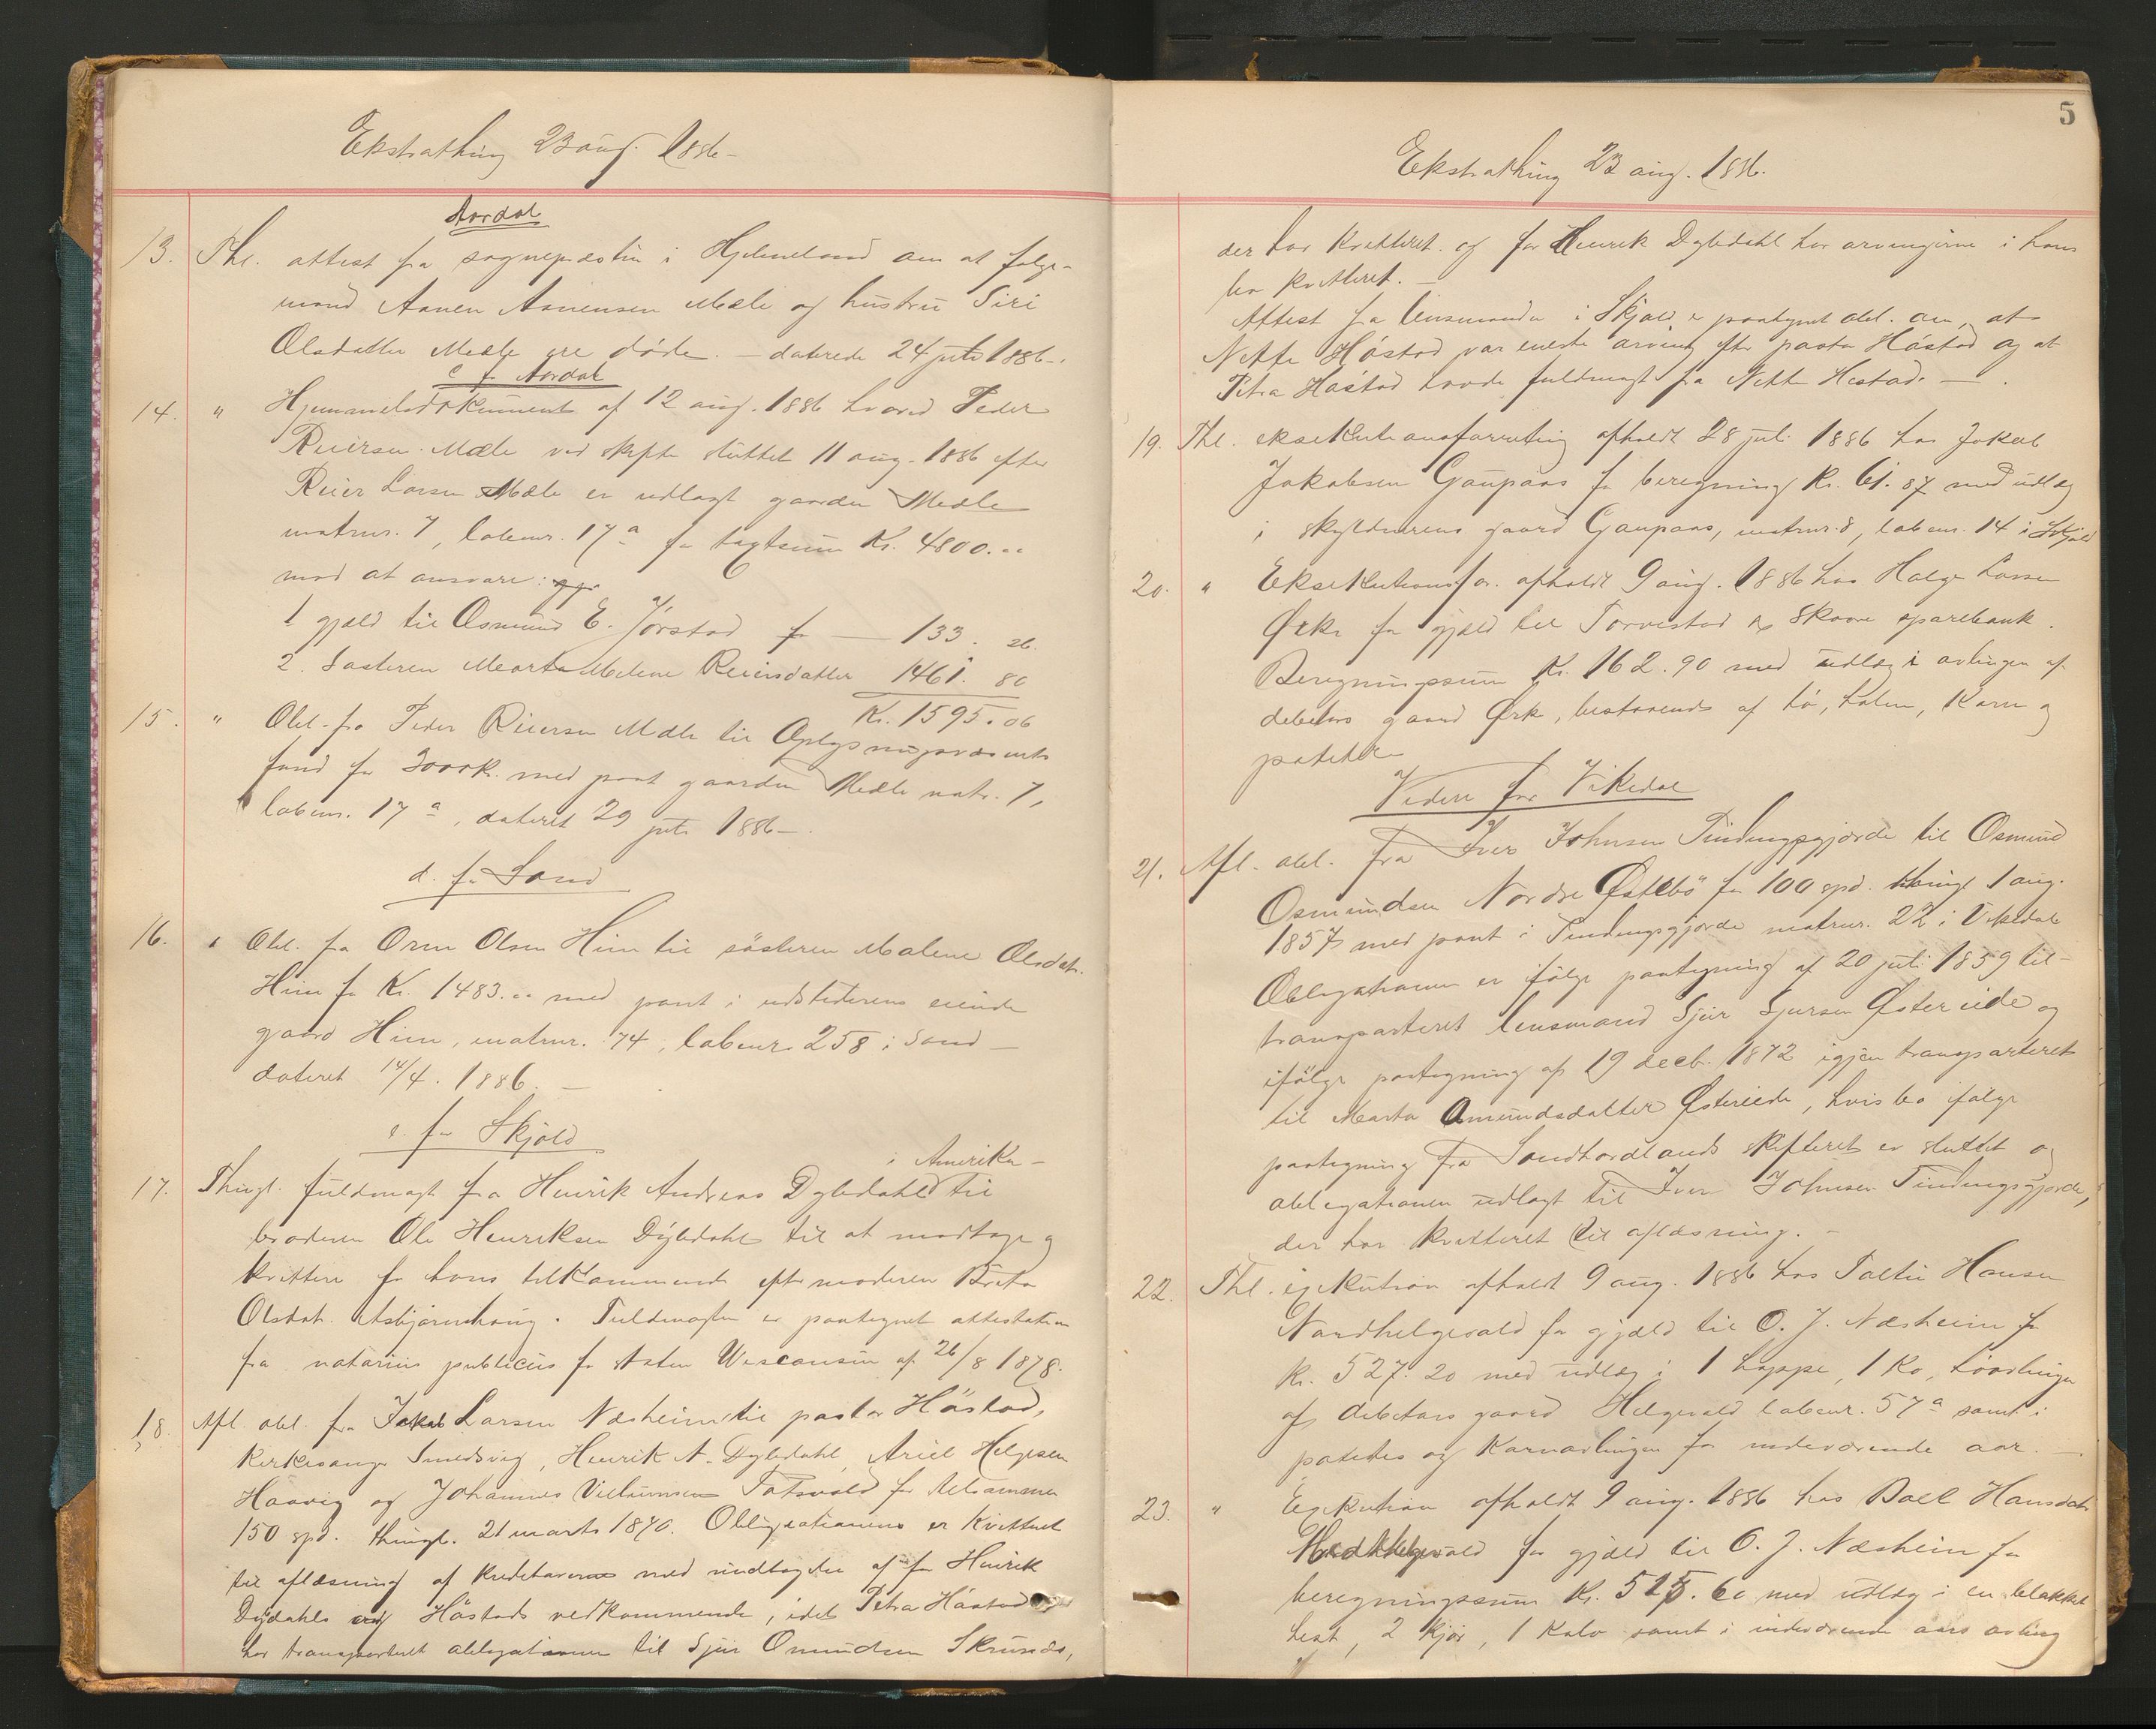 Ekstrathing 23 aug. 1886 –
Aardal
13. Thl. attest fra sognepresten i Hjelmeland om at følge-
mand Aanen Aanensen Mæle og hustru Siri
Olsdatter Mæle ere døde. – daterede 24 juli 1886 –.
c. f. Aardal
14. " Hjemmelsdokument af 12 aug. 1886 hvorved Peder
Reiersen Mæle ved skifte sluttet 11 aug. 1886 efter
Reier Larsen Mæle er udlagt gaarden Mæle
matrnr. 7, løbenr. 17a for taxtsum Kr. 4800. "
mod at ansvare:
1 gjæld til Osmund E. Jörstad for — 133. 26.
2. Søsteren Marta Malene Reiersdatter 1461. 80
Kr. 1595. 06
15. " Obl. fra Peder Reiersen Mæle til Oplysningsvæsenets
fond for 3000 k. med pant gaarden Mæle matr. 7,
løbenr. 17a, dateret 29 juli 1886 –.
d. for Sand
16. " Obl. fra Orm Olsen Hiim til søsteren Malene Olsdatr.
Hiim for Kr. 1483. " med pant i udstederens eiende
gaard Hiim, matrnr. 74, løbenr. 258 i Sand –
dateret 14/4. 1886. –
e. for Skjold
i Amerika –
17. Thingl. fuldmagt fra Henrik Andreas Dybdahl til
broderen Ole Henriksen Dybdahl til at modtage og
kvittere for hans tilkommende efter moderen Berta
Olsdat. Asbjørnhaug. Fuldmagten er paategnet attestation
fra notarius publicus for Wisconsin af 26/8 1878.
18. Afl. obl. fra Jakob Larsen Næsheim til pastor Hästad,
Kirkesanger Smedsvig, Henrik A. Dybdahl, Ariel Helgesen
Haavig og Johannes Vilhiumsen for tilsammen
150 spd. thingl. 21 marts 1870. Obligationen er kvitteret
til aflæsning af kreditorerne med undtagelse af for Henrik
Dydahls og Hästads vedkommende, idet Petra Hästad
har transporteret obligationen til Sjur Omundsen Skrunds,
5
Ekstrathing 23 aug. 1886.
der har kvitteret og for Henrik Dybdahl har arvingerne i hans
bo kvitteret. –
Attest fra lensmanden i Skjold er paategnet obl. om, at
Nette Hästad var eneste arving efter pastor Hästad og at
Petra Hästad havde fuldmagt fra Nette Hestad. –
19. Thl. eksekutionsforretning afholdt 28 juli 1886 hos Jakob
Jakobsen Gaupaas for beregning Kr. 61. 87 med udlæg
i skyldnerens gaard Gaupaas, matrnr. 8, løbenr. 14 i Skjold
20. " Eksekutionsfor. afholdt 9 aug. 1886 hos Helge Larsen
Ørke for gjæld til Torvestad og Skaare sparebank.
Beregningssum Kr. 162. 90 med udlæg i avlingen af
debitors gaard Ørk, bestaaende af hø, halm, korn og
poteter
Videre for Vikedal
21. Afl. obl. fra Iver Johnsen Tindingsgjørde til Osmund
Osmundsen Nordre Østebö for 100 spd. thingl. 1 aug.
1857 med pant i Tindingsgjørde matrnr. 22 i Vikedal
Obligationen er ifølge paategning af 20 juli 1859 til-
transporteret lensmand Sjur Sjursen Østereide og
ifølge paategning af 19 decb. 1872 igjen transporteret
til Marta Omundsdatter Østereide, hvis bo ifølge
paategning fra Søndhordlands skifteret er sluttet og
obligationen udlagt til Iver Johnsen Tindingsgjørde,
der har kvitteret til aflæsning. –
22. Thl. exekution afholdt 9 aug. 1886 hos Hansen
Nordhelgevold for gjæld til O. J. Næsheim for
Kr. 527. 20 med udlæg i 1 hoppe, 1 ko, höavlingen
af debitors gaard Helgevold løbenr. 57a samt i
potetes og kornavlingen for indeværende aar. –
23. " Exekution afholdt 9 aug. 1886 hos Hansdatr.
for gjæld til O. J. Næsheim for
beregningssum Kr. 515. 60 med udlæg i en blakket
hest, 2 kjør, 1 kalv samt i indeværende aars avling